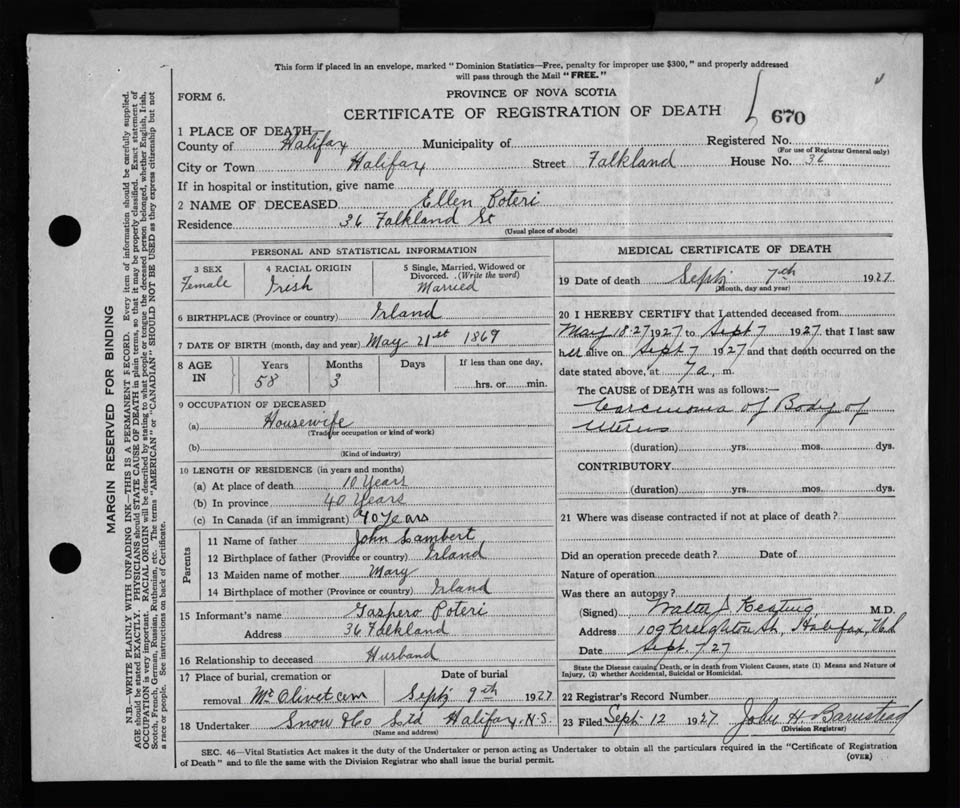 This form if placed in an envelope, marked "Dominion Statistics—Free, penalty for improper use $300," and properly addressed
will pass through the Mail "FREE."
FORM 6.
PROVINCE OF NOVA SCOTIA
CERTIFICATE OF REGISTRATION OF DEATH
670
1 PLACE OF DEATH
County of Halifax Municipality of Registered No.
(For use of Registrar General only)
City or Town Halifax Street Falkland House No. 36
If in hospital or institution, give name
2 NAME OF DECEASED Ellen Poteri
Residence 36 Falkland St
(Usual place of abode)
PERSONAL AND STATISTICAL INFORMATION
3 SEX 4 RACIAL ORIGIN 5 Single, Married, Widowed or
Divorced. (Write the word)
Female Irish Married
6 BIRTHPLACE (Province or country) Irland
7 DATE OF BIRTH (month, day and year) May 21st 1869
8 AGE IN Years Months Days If less than one day,
58 3 hrs. or min.
9 OCCUPATION OF DECEASED
(a) Housewife
(Trade or occupation or kind of work)
(b)
(Kind of industry)
10 LENGTH OF RESIDENCE (in years and months)
(a) At place of death 10 Years
(b) In province 40 Years
(c) In Canada (if an immigrant) 40 Years
Parents
11 Name of father John Lambert
12 Birthplace of father (Province or country) Irland
13 Maiden name of mother Mary
14 Birthplace of mother (Province or country) Irland
15 Informant's name Gaspero Poteri
Address 36 Falkland
16 Relationship to deceased Husband
17 Place of burial, cremation or Date of burial
removal Mt Olivet cem Sept 9th 1927
18 Undertaker Snow & Co Ltd Halifax, N.S.
(Name and address)
MEDICAL CERTIFICATE OF DEATH
19 Date of death Sept 7th 1927
(Month, day and year)
20 I HEREBY CERTIFY that I attended deceased from
May 18-27 1927 to Sept 7 1927 that I last saw
her alive on Sept 7 1927 and that death occurred on the
date stated above, at 7 a. m.
The CAUSE OF DEATH was as follows:—
Carcinoma of Body of
Uterus
(duration) yrs. mos. dys.
CONTRIBUTORY
(duration) yrs. mos. dys.
21 Where was disease contracted if not at place of death?
Did an operation precede death? Date of
Nature of operation
Was there an autopsy?
(Signed) Walter J. Keating M.D.
Address 109 Creighton St., Halifax,
Date Sept. 7 27
State the Disease causing Death, or in death from Violent Causes, state (1) Means and Nature of
Injury, (2) whether Accidental, Suicidal or Homicidal.
22 Registrar's Record Number
23 Filed Sept 12 1927 John H. Barnstead
(Division Registrar)
SEC. 46—Vital Statistics Act makes it the duty of the Undertaker or person acting as Undertaker to obtain all the particulars required in the "Certificate of Registration
of Death" and to file the same with the Division Registrar who shall issue the burial permit.
(OVER)
MARGIN RESERVED FOR BINDING
N.B.—WRITE PLAINLY WITH UNFADING INK—THIS IS A PERMANENT RECORD. Every item of information should be carefully supplied.
AGE should be stated EXACTLY. PHYSICIANS should STATE CAUSE OF DEATH in plain terms, so that it may be properly classified. Exact statement of
OCCUPATION is very important. RACIAL ORIGIN will be described by stating to what people or tongue the deceased person belonged, whether English, Irish,
Scotch, French, German, Russian, Ruthenian, etc. The terms "AMERICAN" or "CANADIAN" SHOULD NOT BE USED as they express citizenship but not
a race or people. See instructions on back of Certificate.